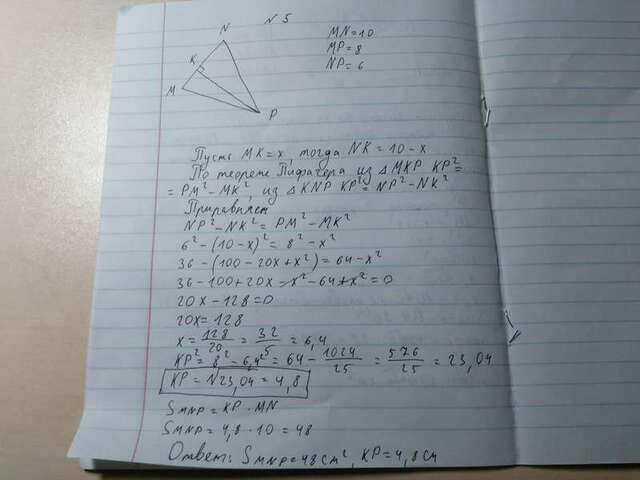 N 5
N
K
M
P
MN=10
MP=8
NP=6
Пусть MK=x, тогда NK=10-x
По теореме Пифагора из △MKP KP²=
=PM²-MK², из △KNP KP²=NP²-NK²
Приравняем
NP²-NK²=PM²-MK²
6²-(10-x)²=8²-x²
36-(100-20x+x²)=64-x²
36-100+20x-x²-64+x²=0
20x-128=0
20x=128
x=128/20=32/5=6,4
KP²=8²-6,4²=64-1024/25=576/25=23,04
KP=√23,04=4,8
SMNP=KP·MN
SMNP=4,8·10=48
Ответ: SMNP=48см², KP=4,8см